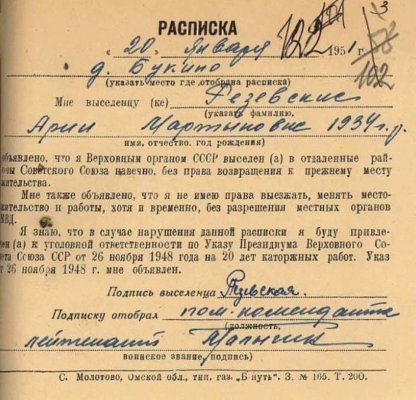 РАСПИСКА
"20" января 1951 г.
д. Букино
(указать место где отобрана расписка)
Мне выселенцу (ке) Резевскис
указать фамилию,
Арии Мартыновне 1934 г.р.
имя, отчество, год рождения)
объявлено, что я Верховным органом СССР выселен (а) в отдаленные рай-
оны Советского Союза навечно, без права возвращения к прежнему месту
жительства.
Мне также объявлено, что я не имею права выезжать, менять место-
жительство и работы, хотя и временно, без разрешения местных органов
МВД.
Я знаю, что в случае нарушения данной расписки я буду привле-
чен(а) к уголовной ответственности по Указу Президиума Верховного Со-
вета Союза ССР от 26 ноября 1948 года на 20 лет каторжных работ. Указ
от 26 ноября 1948 г. мне объявлен.
Подпись выселенца
Подписку отобрал пом. коменданта
должность,
лейтенант
воинское звание, подпись)
С. Молотово, Омской обл., тип. газ. „Б путь". З. № 165. Т. 200.
122
102